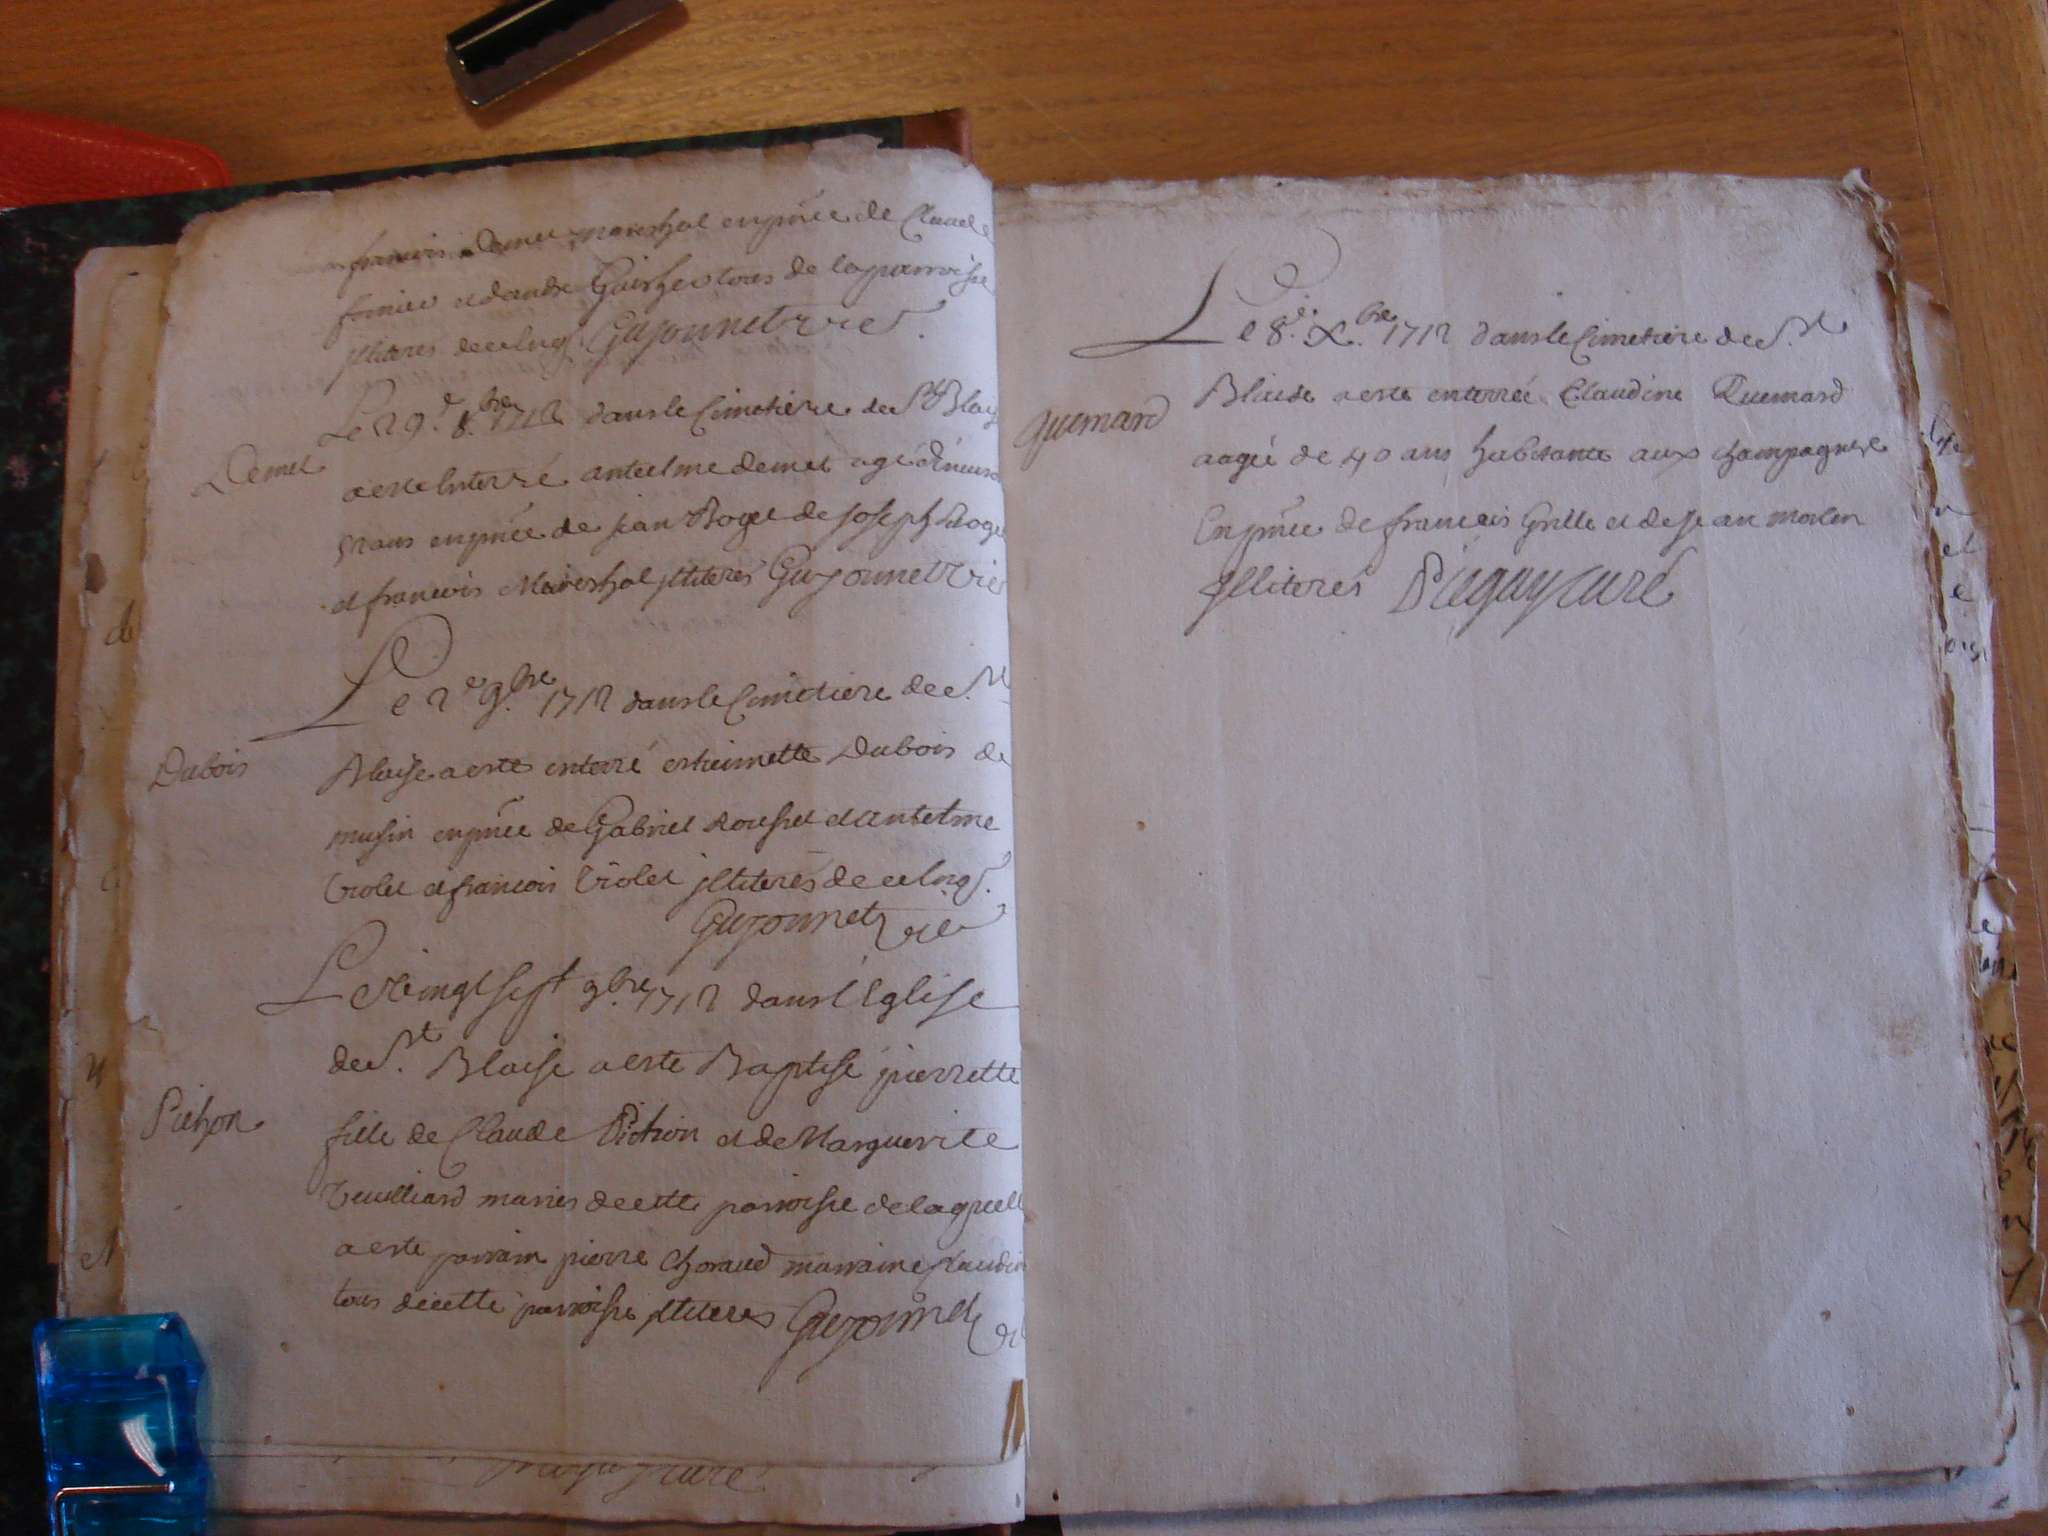 francois Demet mareshal en pnce de Claude
et dandre tous de la parroisse
jlliteres de ce enqs Guyonnet vic
Le 29.e 8.bre 1712 dans le Cimetiere de St Blais
Demet
a este Enterré antelme demet age
ans en pnce de jean Roget de Joseph Roge
et francois Mareshal jlliteres Guyonnet vic
Le 2e 9.bre 1712 dans le Cimetiere de St
Dubois
Blaise a este enterré estiennette Dubois de
musin en pnce de Gabriel Rousset et antelme
Violet et francois Violet jlliterés de ce enqs.
Guyonnet vic
Le Vingt sept 9.bre 1712 dans l'Eglise
de St. Blaise a este Baptisé pierrette
Pichon
fille de Claude Pichon et de Marguerite
Vuilliard mariés de cette parroisse de laquelle
a este parrain pierre Choraud marraine Claudin
tous de cette parroisse jlliteres Guyonnet vi
curé
Le 8.e X.bre 1712 dans le Cimetiere de St
Guemard
Blaise a este enterrée Claudine Quemard
aagée de 40 ans habitante aux champagnes
En pnce de francois Grille et de Jean Morlen
Jlliterés curé